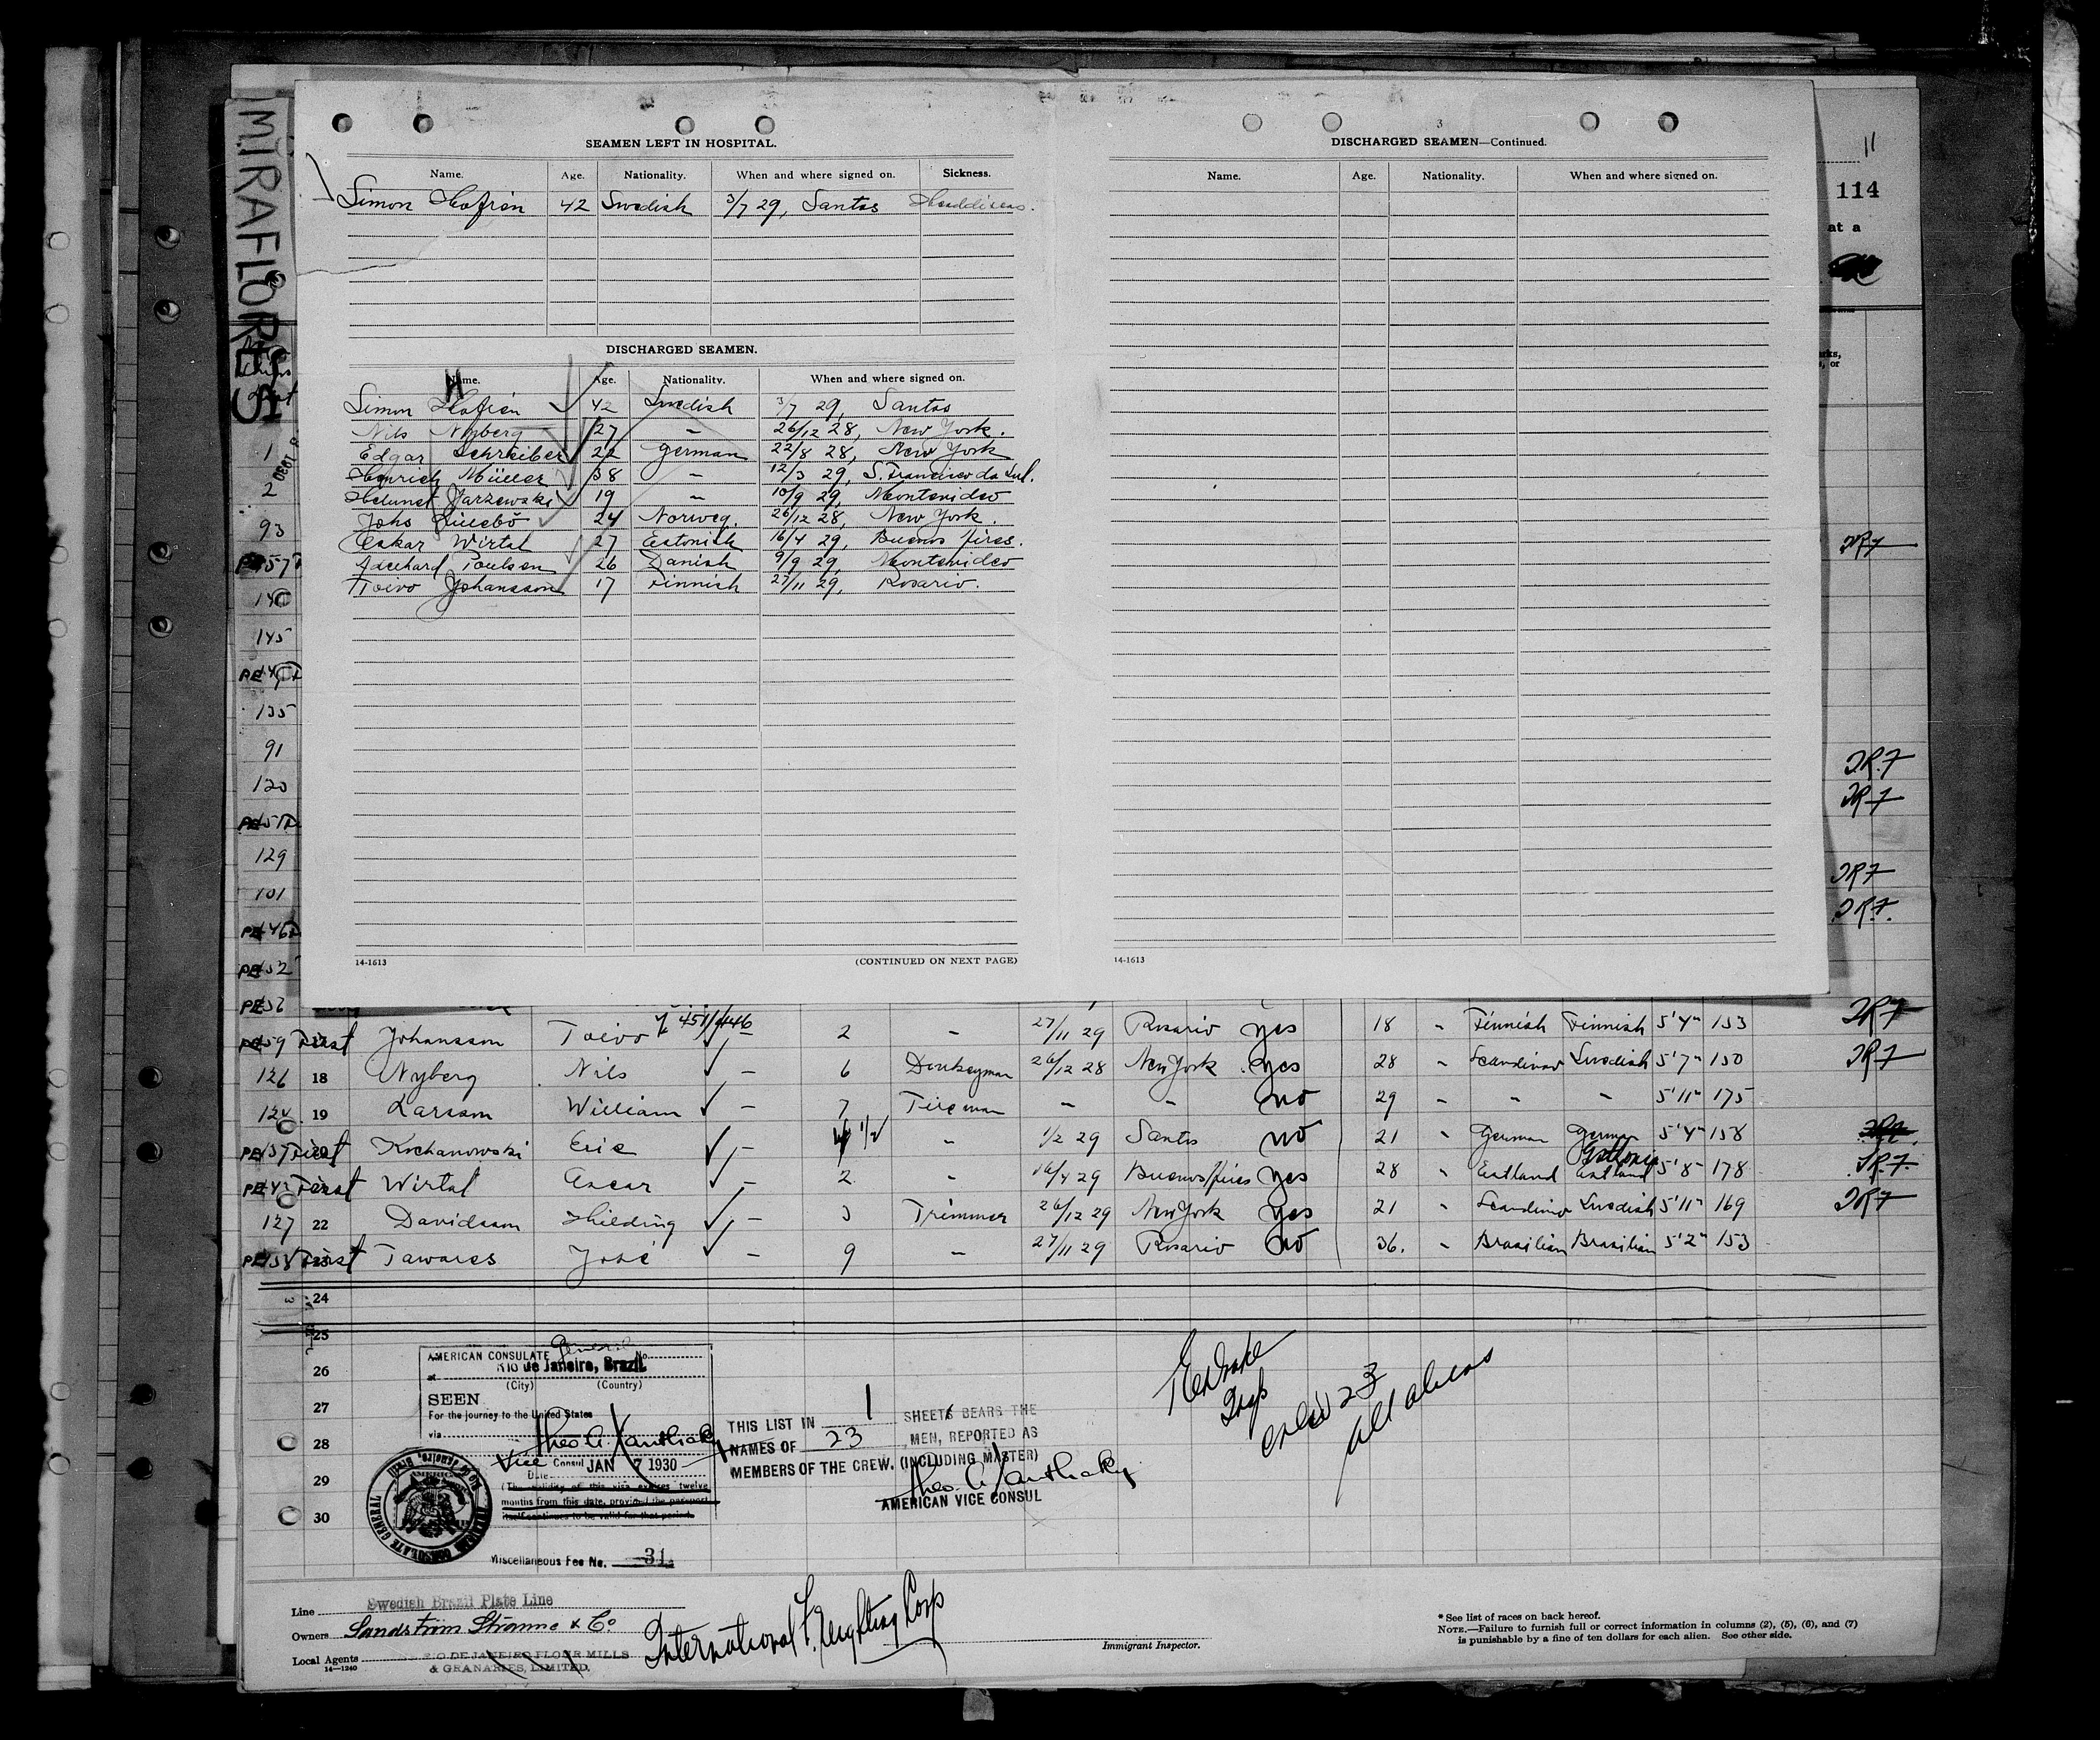 MIRAFLORES
11
114
at a
SEAMEN LEFT IN HOSPITAL.
Name. Age. Nationality. When and where signed on. Sickness.
Simon 42 Swedish 3/7 29, Santos
DISCHARGED SEAMEN.
Name. Age. Nationality. When and where signed on.
Simon 42 Swedish 3/7 29, Santos
Nils Nyberg 27 – 26/12 28, New York.
Edgar Schreiber 22 German 22/8 28, New York
Henrich Müller 38 – 12/3 29, S. Francisco do Sul.
Helmut Jarzewski 19 – 10/9 29, Montevideo
Johs 24 Norweg. 26/12 28, New York.
Oskar Wirtal 27 Estonish 16/4 29, Buenos Aires.
Poulsen 26 Danish 9/9 29, Montevideo
Toivo Johansson 17 Finnish 27/11 29, Rosario.
14-1613 (CONTINUED ON NEXT PAGE)
3
DISCHARGED SEAMEN—Continued.
Name. Age. Nationality. When and where signed on.
14-1613
1
2
93
145
135
91
120
129
101
First Johansson Toivo 2 – 27/11 29 Rosario yes 18 " Finnish Finnish 5'4" 153
126 18 Nyberg Nils – 6 Donkeyman 26/12 28 New York yes 28 " Scandinav Swedish 5'7" 150
124 19 Larsson William – 7 Fireman – – no 29 " " – 5'11" 175
First Kochanowski Eric – " 1/2 29 Santos no 21 " German German 5'4" 158
First Wirtal Oscar – 2 " 16/4 29 Buenos Aires yes 28 " Eastland Eastland 5'8" 178
127 22 Davidsson Hilding – 3 Trimmer 26/12 29 New York yes 21 " Scandinav Swedish 5'11" 169
First Tawares José – 9 – 27/11 29 Rosario no 36. " Brasilian Brasilian 5'2" 153
24
25
26
27
28
29
30
AMERICAN CONSULATE General No.
at Rio de Janeiro, Brazil
(City) (Country)
SEEN
For the journey to the United States
via
Vice Consul
Date JAN 7 1930
(The validity of this visa expires twelve
months from this date, provided the passport
itself continues to be valid for that period.
Miscellaneous Fee No. 31
AMERICAN CONSULATE GENERAL RIO DE JANEIRO, BRAZIL
THIS LIST IN 1 SHEETS BEARS THE
NAMES OF 23 MEN, REPORTED AS
MEMBERS OF THE CREW. (INCLUDING MASTER)
AMERICAN VICE CONSUL
23
all aliens
Line Swedish Brazil Plate Line
Owners Sandström Stranne & Co
Local Agents RIO DE JANEIRO FLOUR MILLS
& GRANARIES, LIMITED.
14—1240
International Freighting Corp
Immigrant Inspector.
* See list of races on back hereof.
NOTE.—Failure to furnish full or correct information in columns (2), (5), (6), and (7)
is punishable by a fine of ten dollars for each alien. See other side.